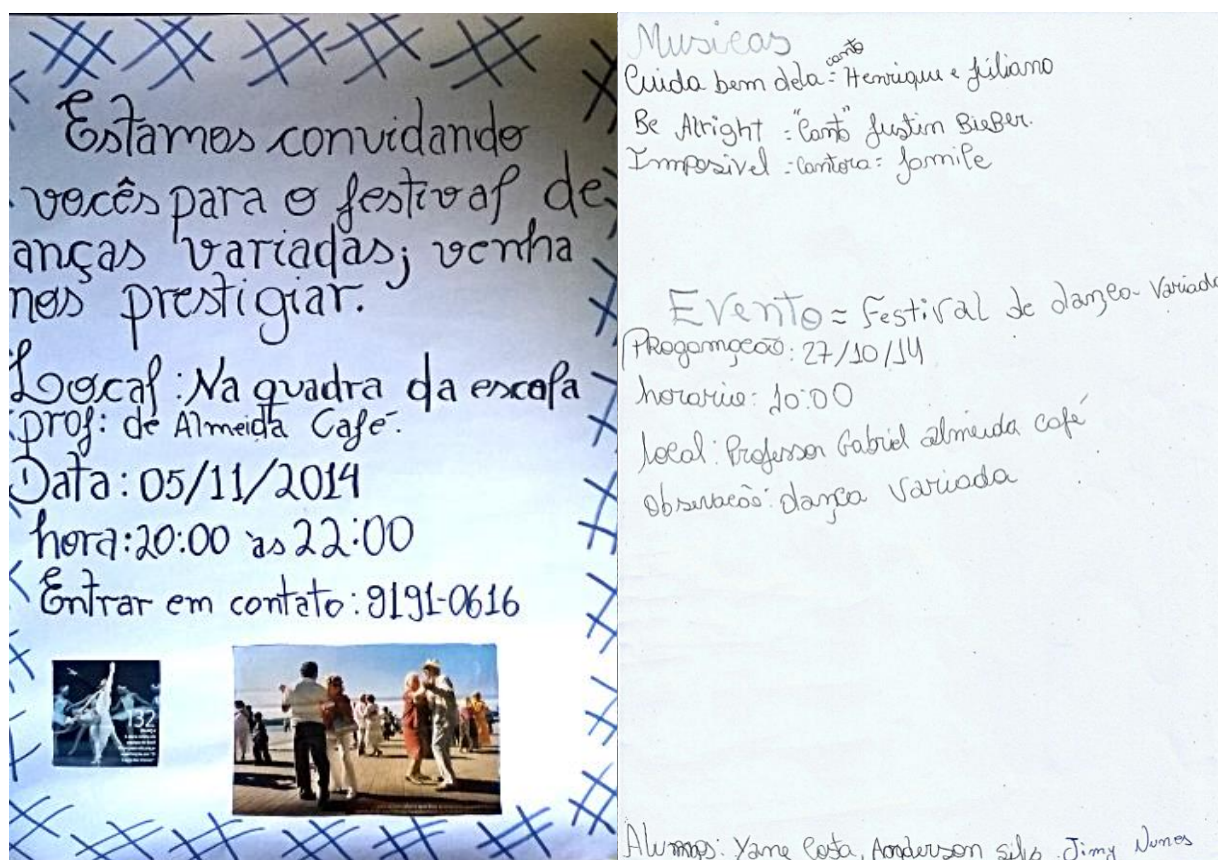 Estamos convidando
vocês para o festival de
anças variadas; venha
nos prestigiar.
Local: Na quadra da escola
prof: de Almeida Café.
Data: 05/11/2014
hora: 20:00 às 22:00
Entrar em contato: 9191-0616
132
Musicas
canto
Cuida bem dela = Henrique e Juliano
Be Alright = "Canto" Justin BieBer.
Imposivel = Cantora = Jamile
Evento = Festival de dança Variada
PRogamação: 27/10/14
horario: 10:00
local: Professor Gabriel almeida café
Observação: dança Variada
Alunos: Yane Costa, Anderson silva, Jimy Nunes